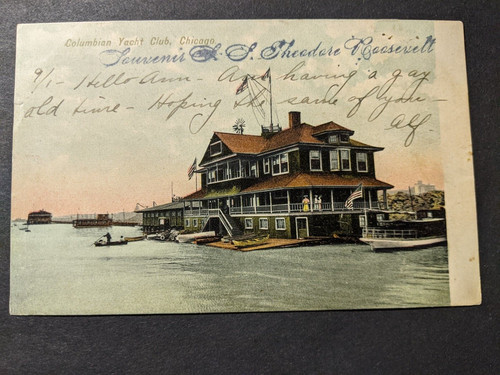 Columbian Yacht Club, Chicago
Souvenir S. S. Theodore Roosevelt
9/1 - Hello Ann - Am having a gay
old time - Hoping the same of you -
Alf -